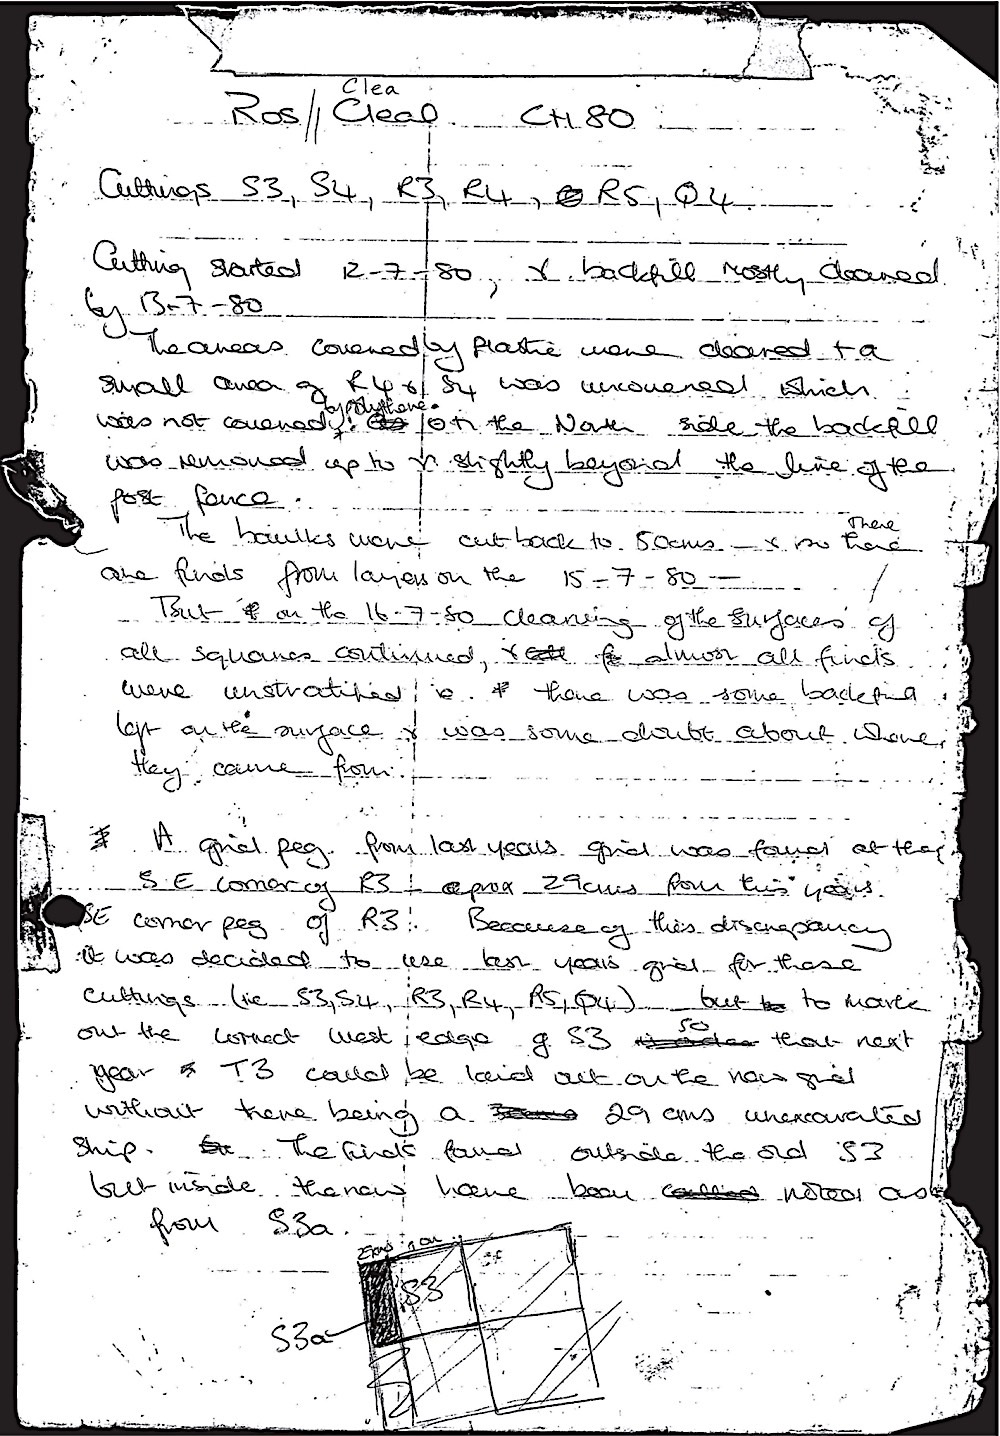 Clea
Ros// Cleal CH 80
Cuttings S3, S4, R3, R4, R5, Q4.
Cutting started 12-7-80, & backfill mostly cleared
by 13-7-80
The areas covered by plastic were cleared + a
small area of R4 & S4 was uncovered which
by polythene.
was not covered. On the North side the backfill
was removed up to & slightly beyond the line of the
post fence.
There
The baulks were cut back to 50cms — & so there
are finds from layers on the 15-7-80 —
But on the 16-7-80 cleaning of the surfaces of
all squares continued, & almost all finds
were unstratified ie. there was some backfill
left on the surface & was some doubt about where
they came from.
* A grid peg from last years grid was found at the
SE corner of R3 - aprox 29cms from this years
SE corner peg of R3. Because of this discrepancy
it was decided to use last years grid for these
cuttings (ie S3, S4, R3, R4, R5, Q4) but to mark
so
out the correct west edge of S3 that next
year T3 could be laid out on the new grid
without there being a 29 cms unexcavated
strip. The finds found outside the old S3
but inside the new have been noted as
from S3a.
S3
S3a